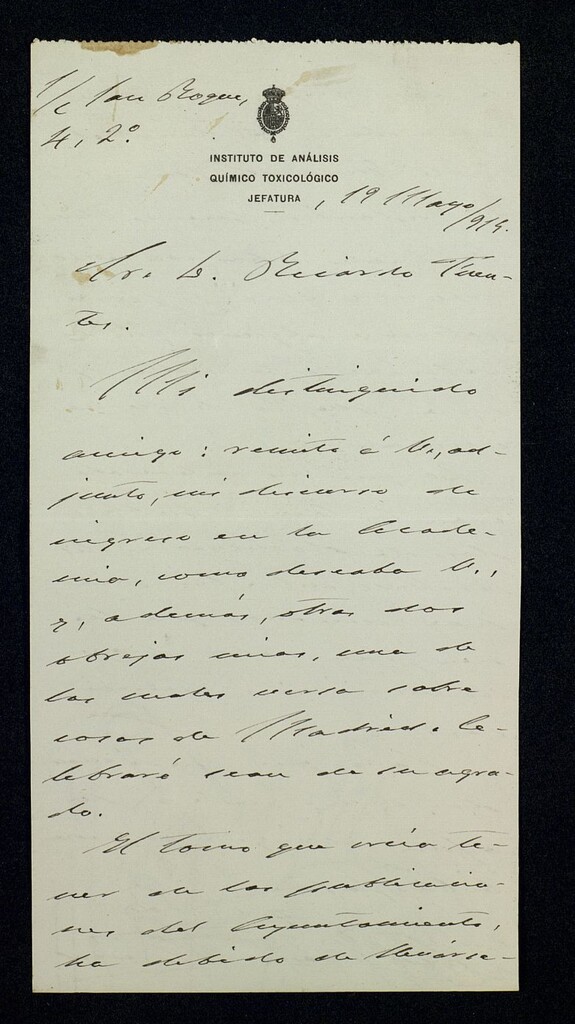 S/C San Roque,
4, 2º
INSTITUTO DE ANÁLISIS
QUÍMICO TOXICOLÓGICO
JEFATURA
, 19 Mayo/914.
Sr. D. Ricardo Fuen-
tes.
Mi distinguido
amigo: remito á V., ad-
junto, mi discurso de
ingreso en la Acade-
mia, como deseaba V.,
y, además, otras dos
obrejas mias, una de
las cuales versa sobre
cosas de Madrid. Ce-
lebraré sean de su agra-
do.
El tomo que creia te-
ner de las publicacio-
nes del Ayuntamiento,
ha debido de llevárse-